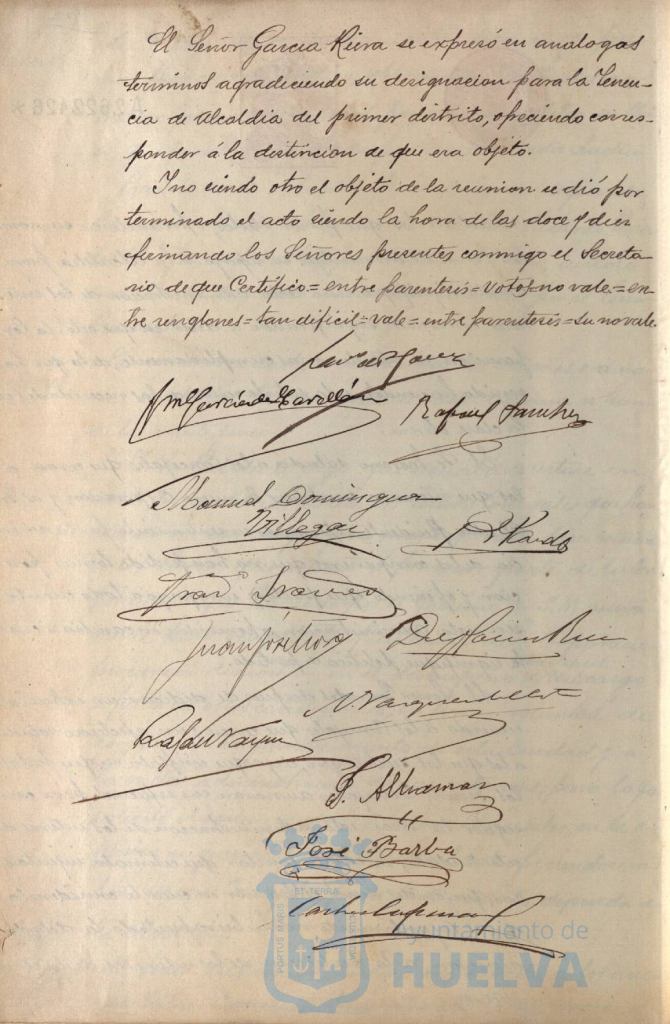 El Señor Garcia Riera se expresó en analogas
terminos agradiciendo su designacion para la Tenen-
cia de Alcaldia del primer distrito, ofreciendo corres-
ponder á la distincion de que era objeto.
Y no siendo otro el objeto de la reunion se dió por
terminado el acto siendo la hora de las doce y diez
firmando los Señores presentes conmigo el Secreta-
rio de que Certifico = entre parentesis = votos = no vale = en-
tre renglones = tan dificil = vale = entre parentesis = su no vale.
Rafael Sanchez
Manuel Dominguez
Villegas
Juan José
Rafael
José Barba
PORTUS MARIS ET TERRÆ
Ayuntamiento de
HUELVA